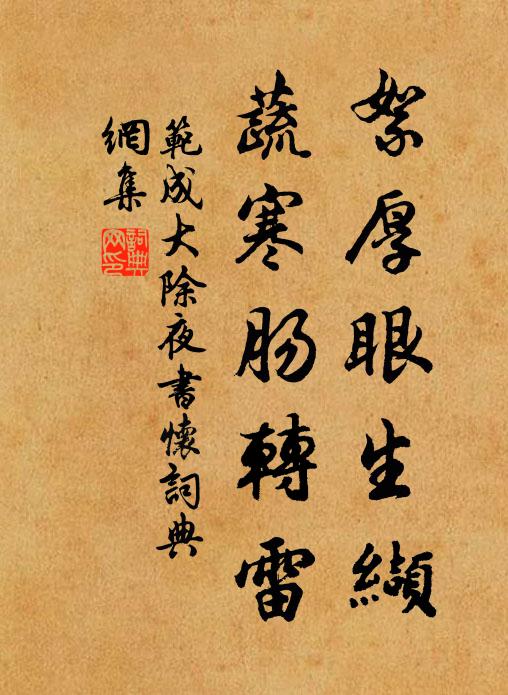 絮厚眼生纈
蔬寒肠轉雷
範成大除夜書懷詞典
網集
詞典
網印